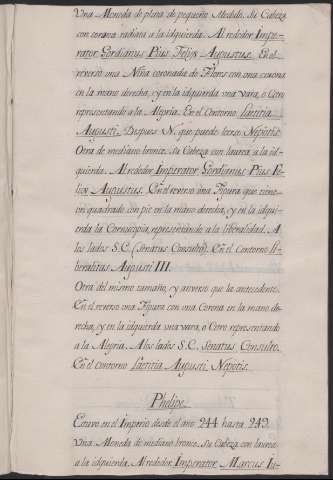 Una Moneda de plata de pequeño Modulo. Su Cabeza
con corona radiata a la izquierda. Alrededor Impe-
rator Gordianus Pius Felix Augustus. En el
reverso una Niña coronada de Flores con una corona
en la mano derecha, y en la izquierda una vara, o Cetro
representando a la Alegria. En el Contorno Laetitia
Augusti. Despues N. que puede leerse Nepotis.
Otra de mediano bronce. Su Cabeza con laurea a la iz-
quierda. Alrededor Imperator Gordianus Pius Fe-
lix Augustus. En el reverso una Figura que tiene
un quadrado con pie en la mano derecha, y en la izqui-
erda la Cornucopia, representando a la liberalidad. A
los lados S.C. (Senatus Consulto). En el Contorno li-
beralitas Augusti III.
Otra del mismo tamaño, y anverso que la antecedente.
En el reverso una Figura con una Corona en la mano de-
recha, y en la izquierda una vara, o Cetro representando
a la Alegria. A los lados S.C. Senatus Consulto.
En el Contorno Laetitia Augusti Nepotis.
Phelipe.
Estuvo en el Imperio desde el año 244 hasta 249.
Una Moneda de mediano bronce. Su Cabeza con laurea
a la izquierda. Alrededor Imperator Marcus Iu-